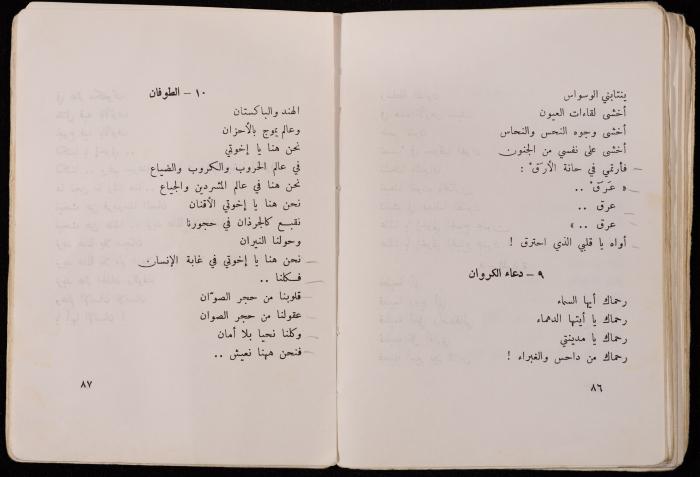 ينتابني الوسواس
أخشى لقاءات العيون
أخشى وجوه النحس والنحاس
أخشى على نفسي من الجنون
فأرتمي في حانة الأرَقْ :
« عَرَقْ ..
عرق ..
عرق .. »
أواه يا قلبي الذي احترق !
٩ – دعاء الكروان
رحماك أيها السماء
رحماك يا أيتها الدهماء
رحماك يا مدينتي
رحماك من داحس والغبراء !
٨٦
١٠ – الطوفان
الهند والباكستان
وعالم يموج بالأحزان
نحن هنا يا إخوتي
في عالم الحروب والكروب والضياع
نحن هنا في عالم المشردين والجياع
نحن هنا يا إخوتي الأقنان
نقبع كالجرذان في جحورنا
وحولنا النيران
نحن هنا يا إخوتي في غابة الإنسان
فكلنا ..
قلوبنا من حجر الصوّان
عقولنا من حجر الصوان
وكلنا نحيا بلا أمان
فنحن ههنا نعيش ..
٨٧